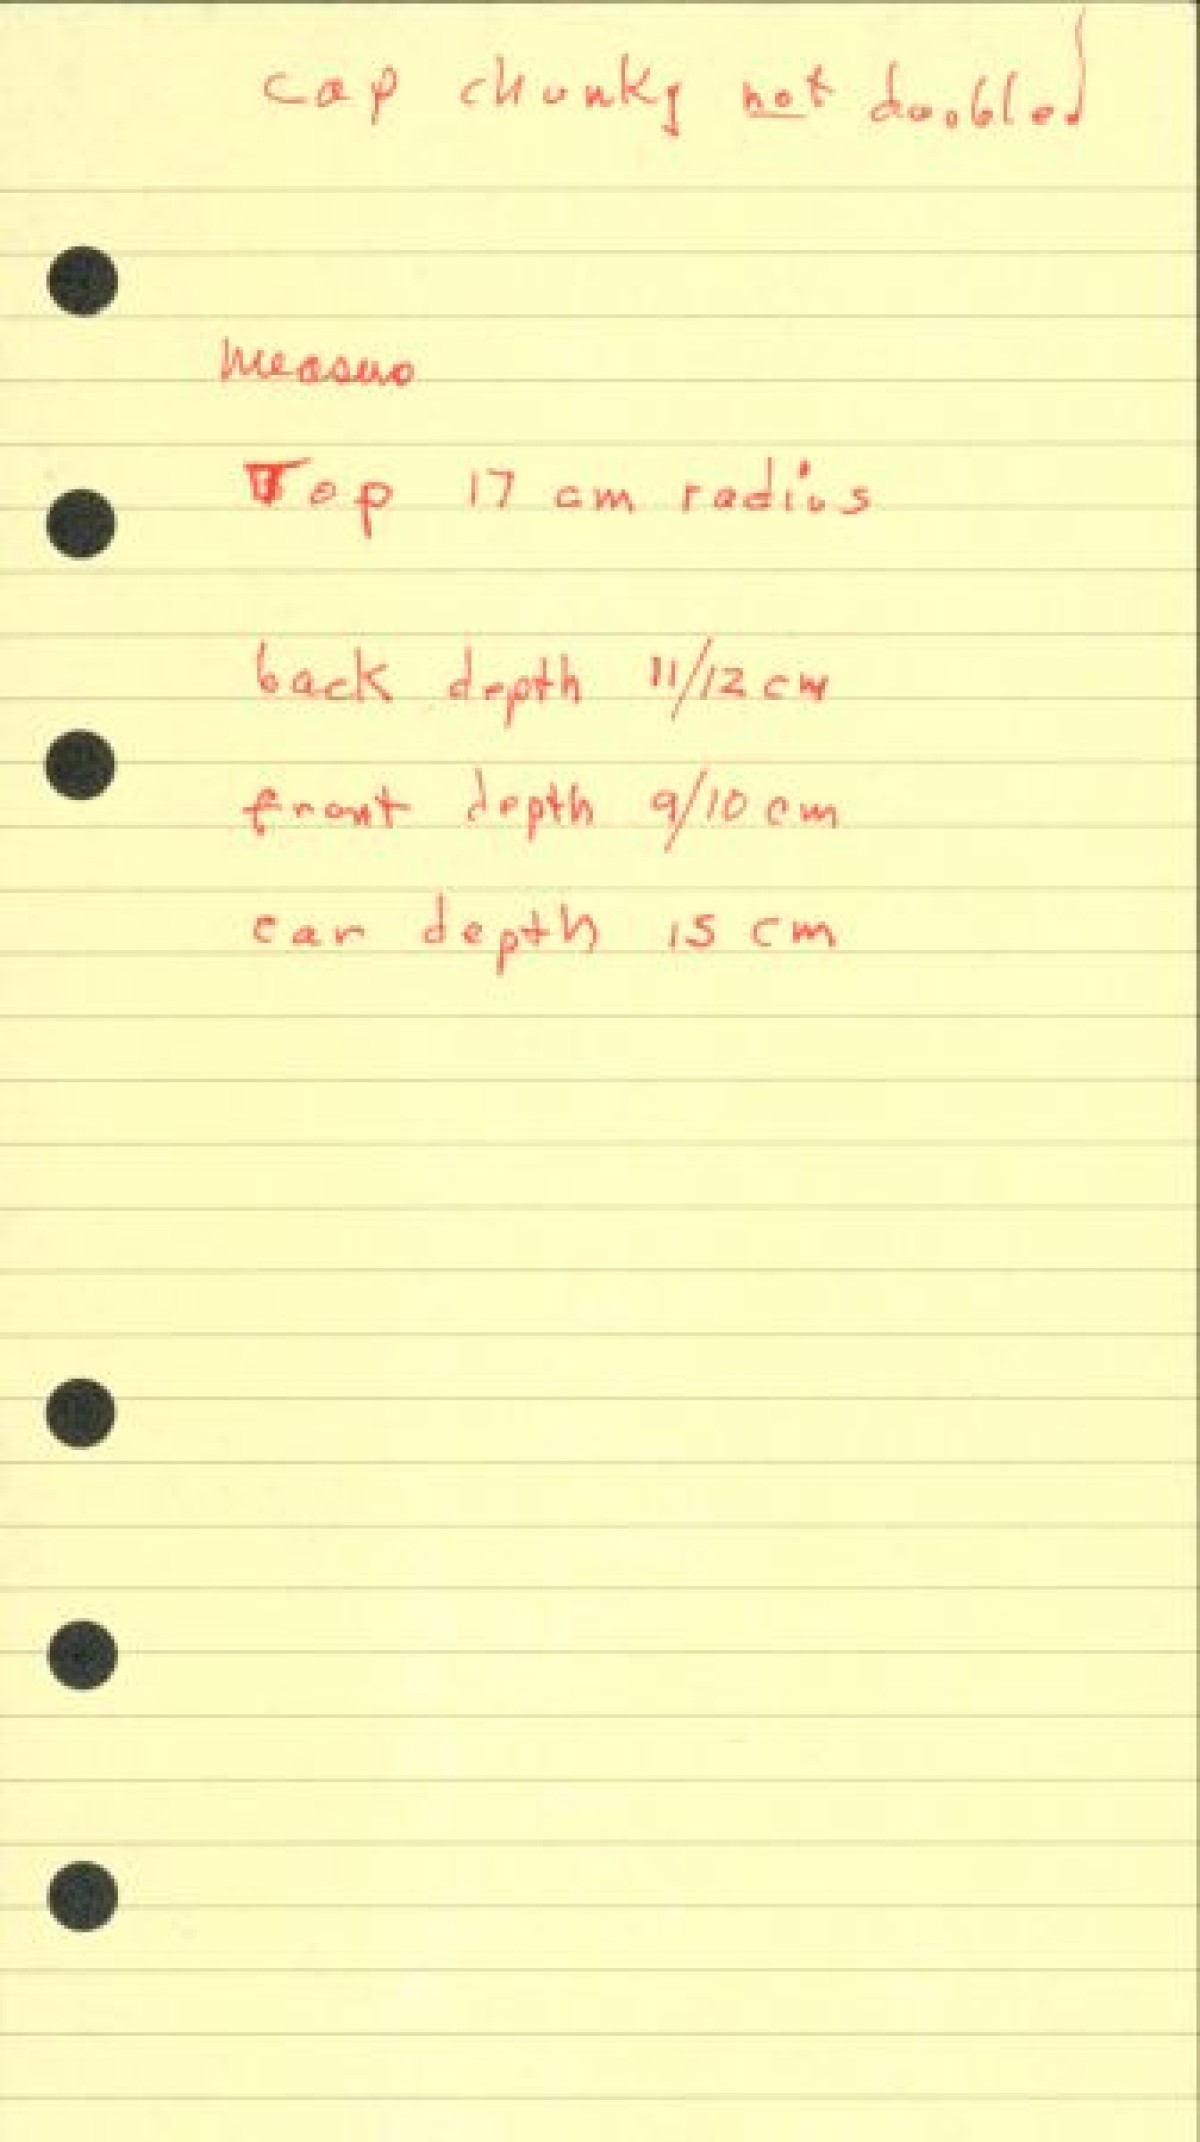 cap chunky not doubled
measure
Top 17 cm radius
back depth 11/12 cm
front depth 9/10 cm
ear depth 15 cm